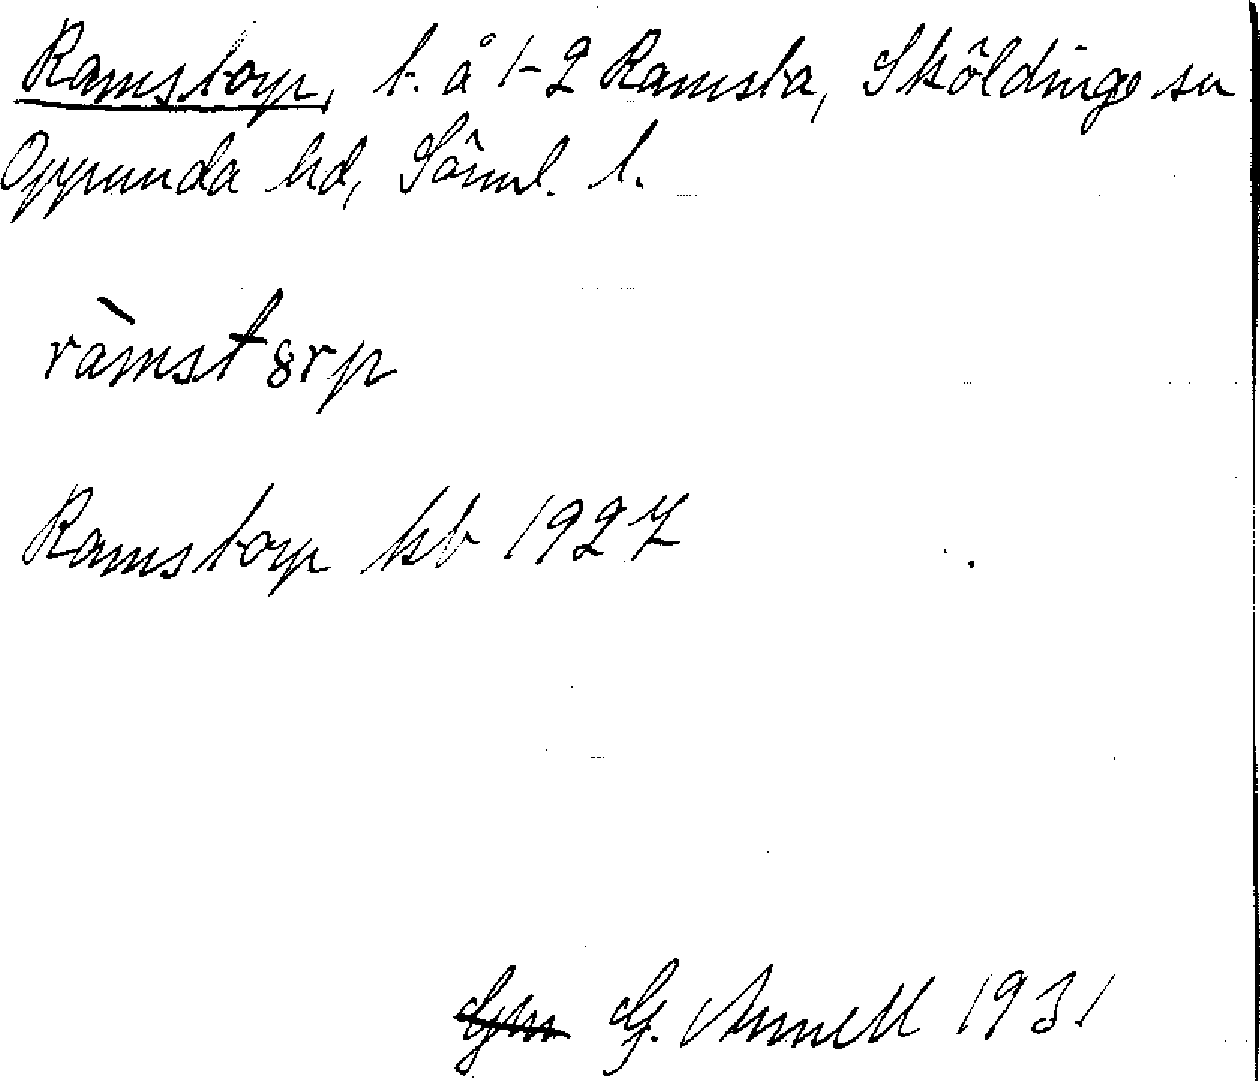 Ramstorp, t. å 1-2 Ramsta, Sköldinge sn
Oppunda hd, Sörml. l.
ràmstȣrp
Ramstorp kb 1927
G. Annell 1931